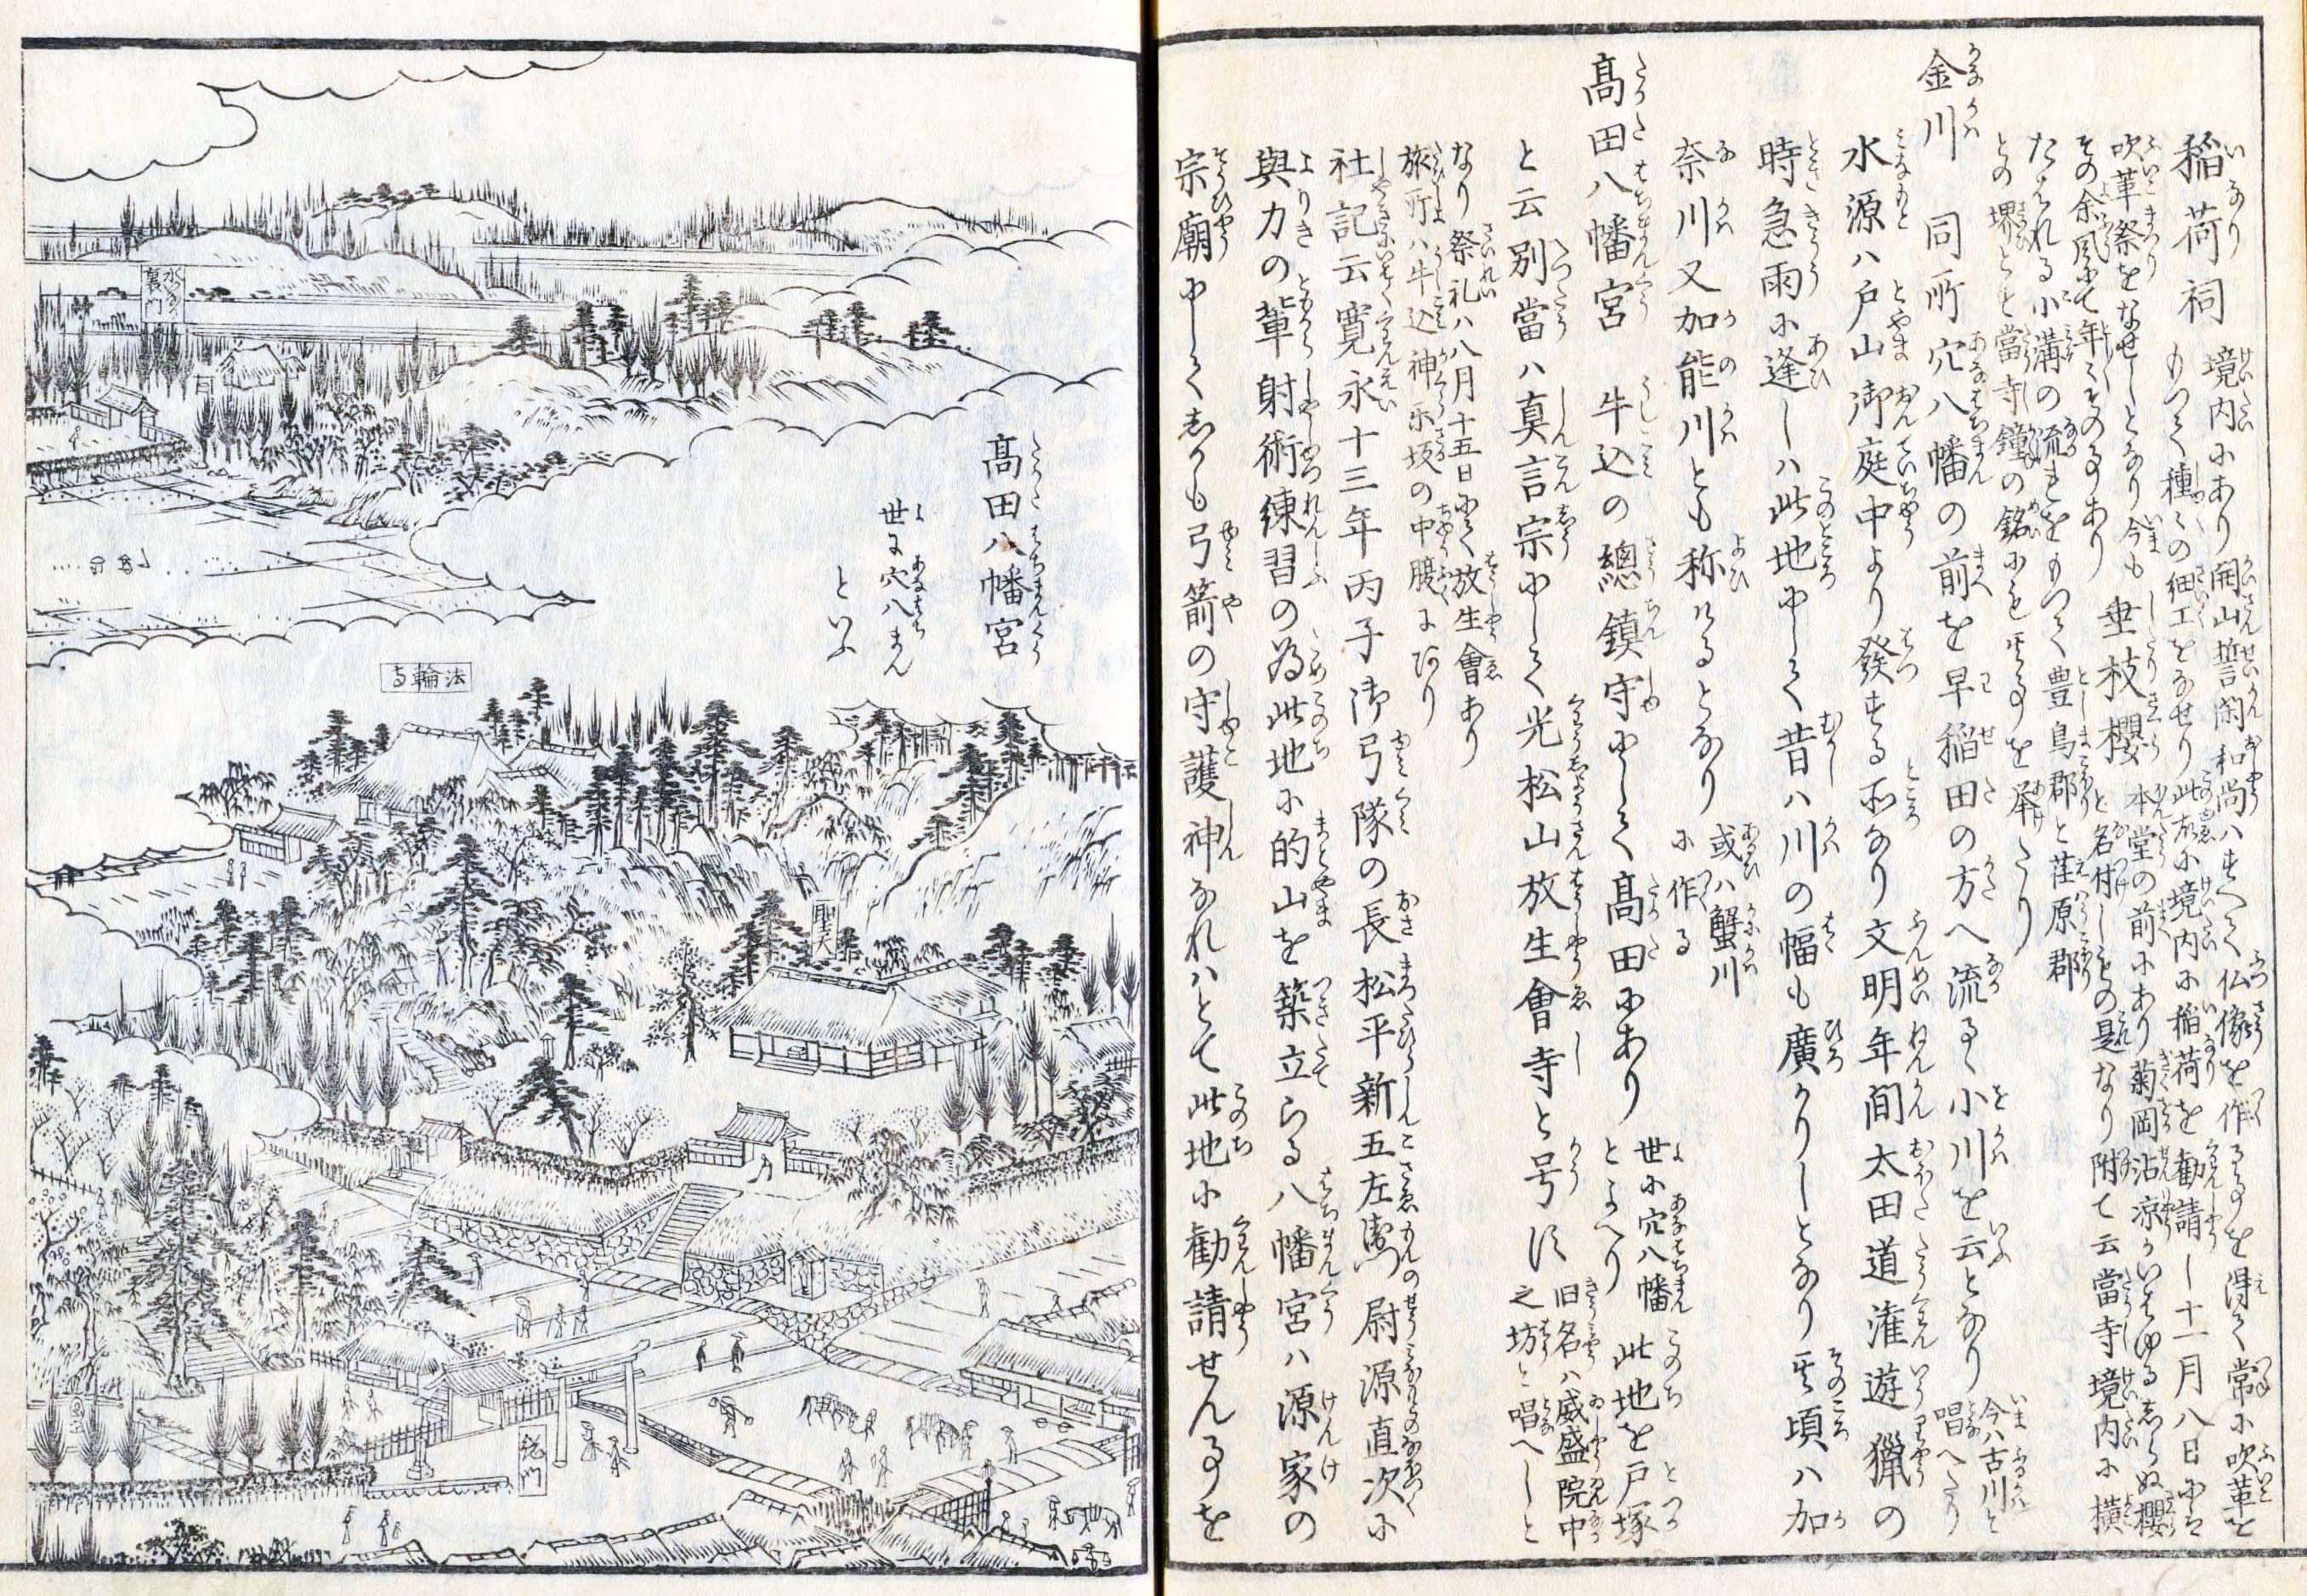 稲荷祠 境内にあり開山誓閑和尚ハすへて仏像を作る事を得て常に吹革を
もつて種〻の細工をなせり此故に境内に稲荷を勧請し十一月八日にハ
吹革祭をなせしとなり今も 垂枝櫻 本堂の前にあり菊岡沾涼かいはゆるしらぬ櫻
その余風にて年〻その事あり と名付しもの是なり附て云當寺境内に横
たはれる小溝の流をもつて豊島郡と荏原郡
との堺とす當寺鐘の銘にも其事を挙たり
金川 同所穴八幡の前を早稲田の方へ流るゝ小川を云となり 今ハ古川と唱へたり
水源ハ戸山御庭中より發する所なり文明年間太田道潅遊猟の
時急雨に逢しハ此地にして昔ハ川の幅も廣かりしとなり其頃ハ加
奈川又加能川とも称けるとなり 或ハ蟹川に作る
髙田八幡宮 牛込の總鎮守にして髙田にあり 世に穴八幡とよへり 此地を戸塚
と云別當ハ真言宗にして光松山放生會寺と号す 旧名ハ威盛院中之坊と唱へしと
なり祭礼ハ八月十五日にて放生會あり
旅所ハ牛込神楽坂の中腹にあり
社記云寛永十三年丙子御弓隊の長松平新五左衛門尉源直次に
與力の輩射術練習の為此地に的山を築立らる八幡宮ハ源家の
宗廟にしてしかも弓箭の守護神なれハとて此地に勧請せん事を
髙田八幡宮
世に穴八まん
といふ
水いなり
裏門
法輪寺
聖天
総門